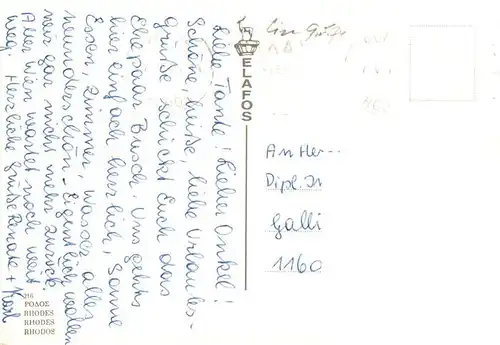 Liebe Tante! Lieber Onkel!
Schöne, heiße, liebe Urlaubs-
grüße schickt Euch das
Ehepaar Busch. Uns gehts
hier einfach herrlich, Sonne
Essen, Zimmer, Wasser alles
wunderschön. Eigentlich wollen
wir gar nicht mehr zurück.
Aber Wien wartet noch weit
weg. Herzliche Grüße Renate + Karl
216
ΡΟΔΟΣ
RHODES
RHODES
RHODOS
ELAFOS
An Her--
Dipl. Ir
Galli
1160